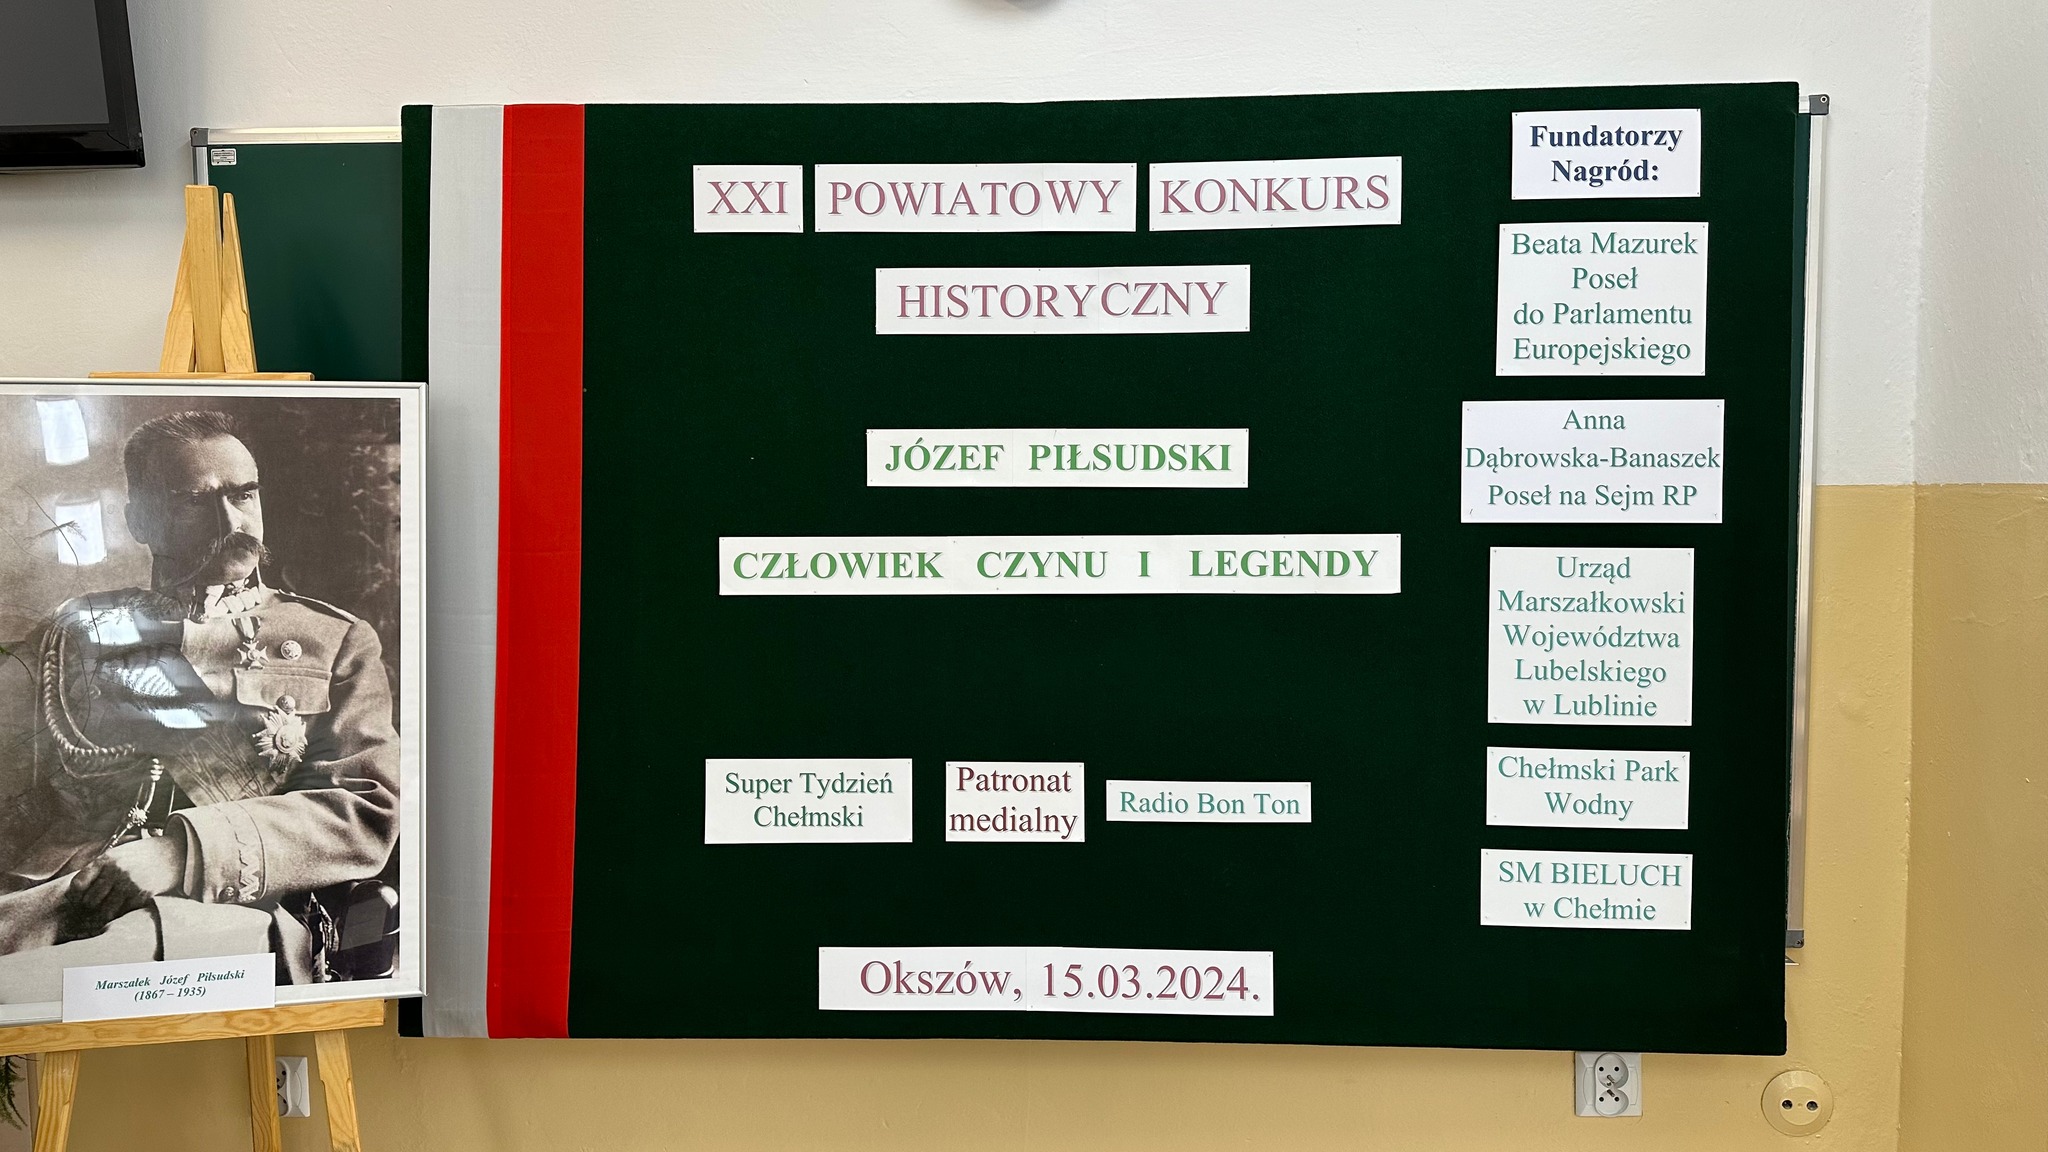 XXI POWIATOWY KONKURS
HISTORYCZNY
JÓZEF PIŁSUDSKI
CZŁOWIEK CZYNU I LEGENDY
Super Tydzień
Chełmski
Patronat
medialny
Radio Bon Ton
Okszów, 15.03.2024.
Fundatorzy
Nagród:
Beata Mazurek
Poseł
do Parlamentu
Europejskiego
Anna
Dąbrowska-Banaszek
Poseł na Sejm RP
Urząd
Marszałkowski
Województwa
Lubelskiego
w Lublinie
Chełmski Park
Wodny
SM BIELUCH
w Chełmie
Marszałek Józef Piłsudski
(1867 – 1935)